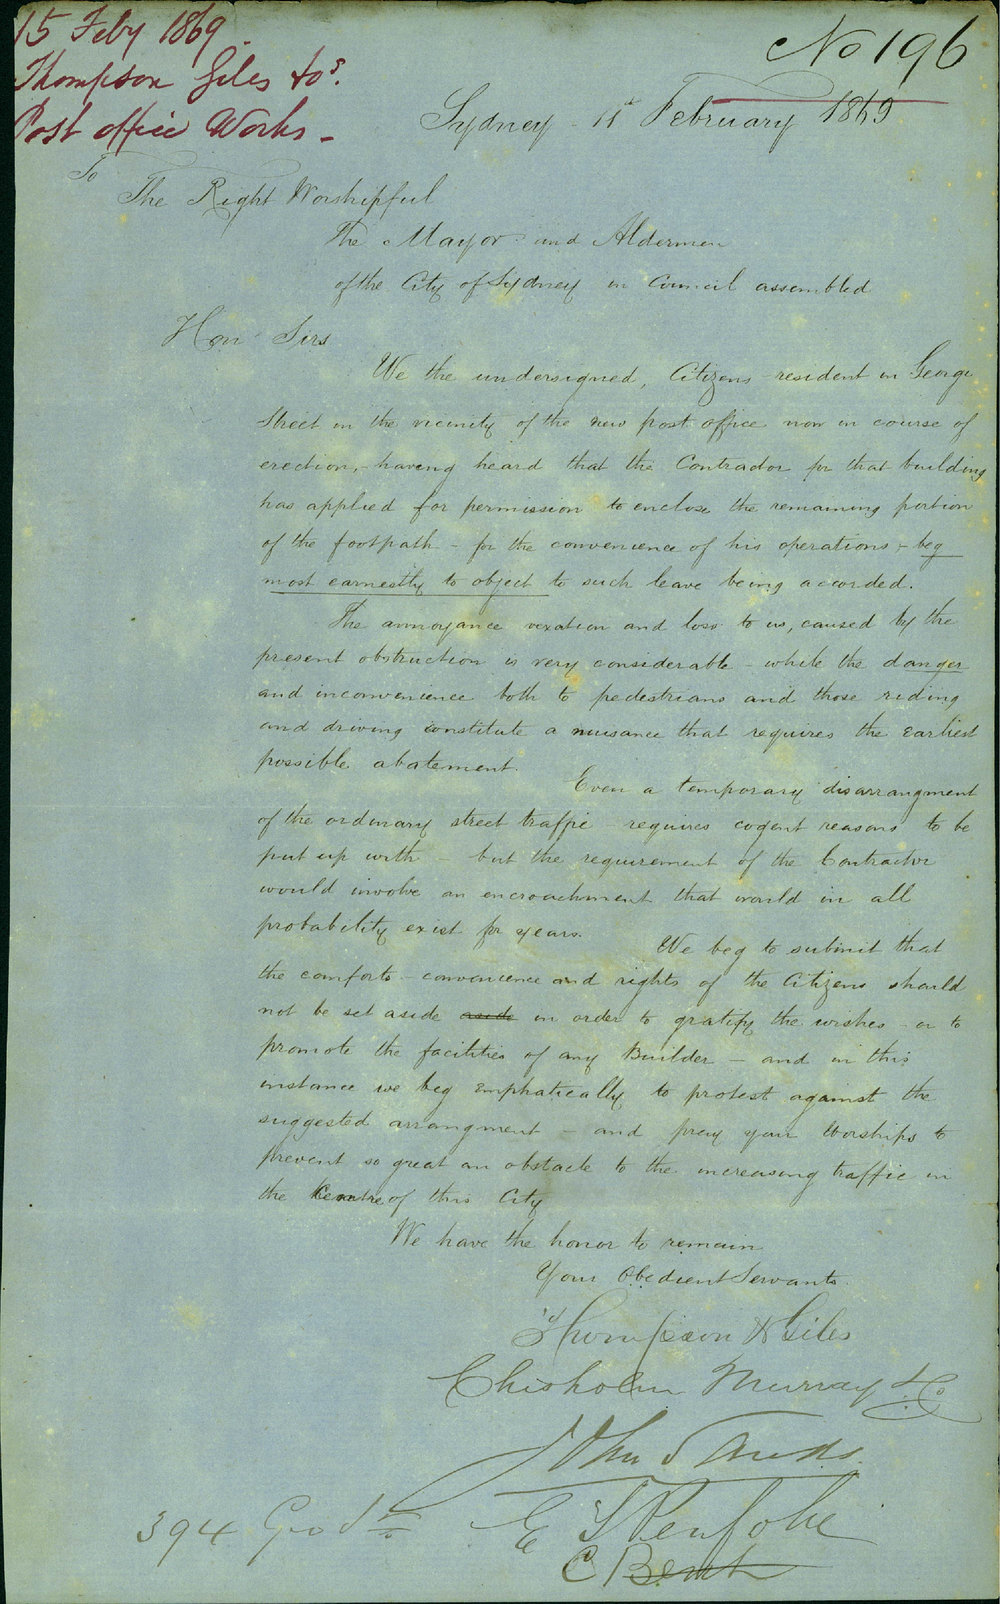 15 Feby 1869.
Thompson Giles &os.
Post office Works -
No 196
Sydney - 11th February 1869
To
The Right Worshipful
The Mayor and Aldermen
of the City of Sydney in Council assembled
Hon Sirs
We the undersigned, Citizens resident in George
Street in the vicinity of the new post office now in course of
erection, - having heard that the Contractor for that building
has applied for permission to enclose the remaining portion
of the footpath - for the convenience of his operations - beg
most earnestly to object to such leave being accorded.
The annoyance vexation and loss to us, caused by the
present obstruction is very considerable - while the danger
and inconvenience both to pedestrians and those riding
and driving constitute a nuisance that requires the earliest
possible abatement.
Even a temporary disarrangment
of the ordinary street traffic - requires cogent reasons to be
put up with - but the requirement of the Contractor
would involve an encroachment that would in all
probability exist for years.
We beg to submit that
the comforts - convenience and rights of the Citizens should
not be set aside aside in order to gratify the wishes - or to
promote the facilities of any Builder - and in this
instance we beg emphatically to protest against the
suggested arrangment - and pray your Worships to
prevent so great an obstacle to the increasing traffic in
the Centre of this City
We have the honor to remain
Your Obedient Servants.
Thompson & Giles
Chisholm Murray & Co
John Sands.
E
Penfold
394 Geo St
C